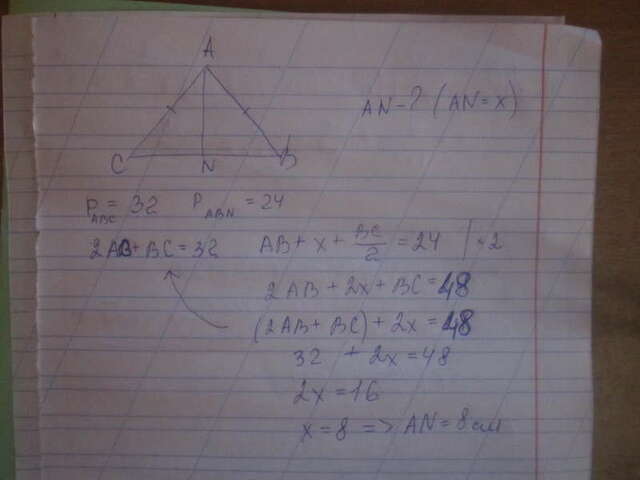 A
C
N
B
AN - ? (AN = x)
P ABC = 32 P ABN = 24
2AB + BC = 32 AB + x + BC/2 = 24 | · 2
2AB + 2x + BC = 48
(2AB + BC) + 2x = 48
32 + 2x = 48
2x = 16
x = 8 => AN = 8 см